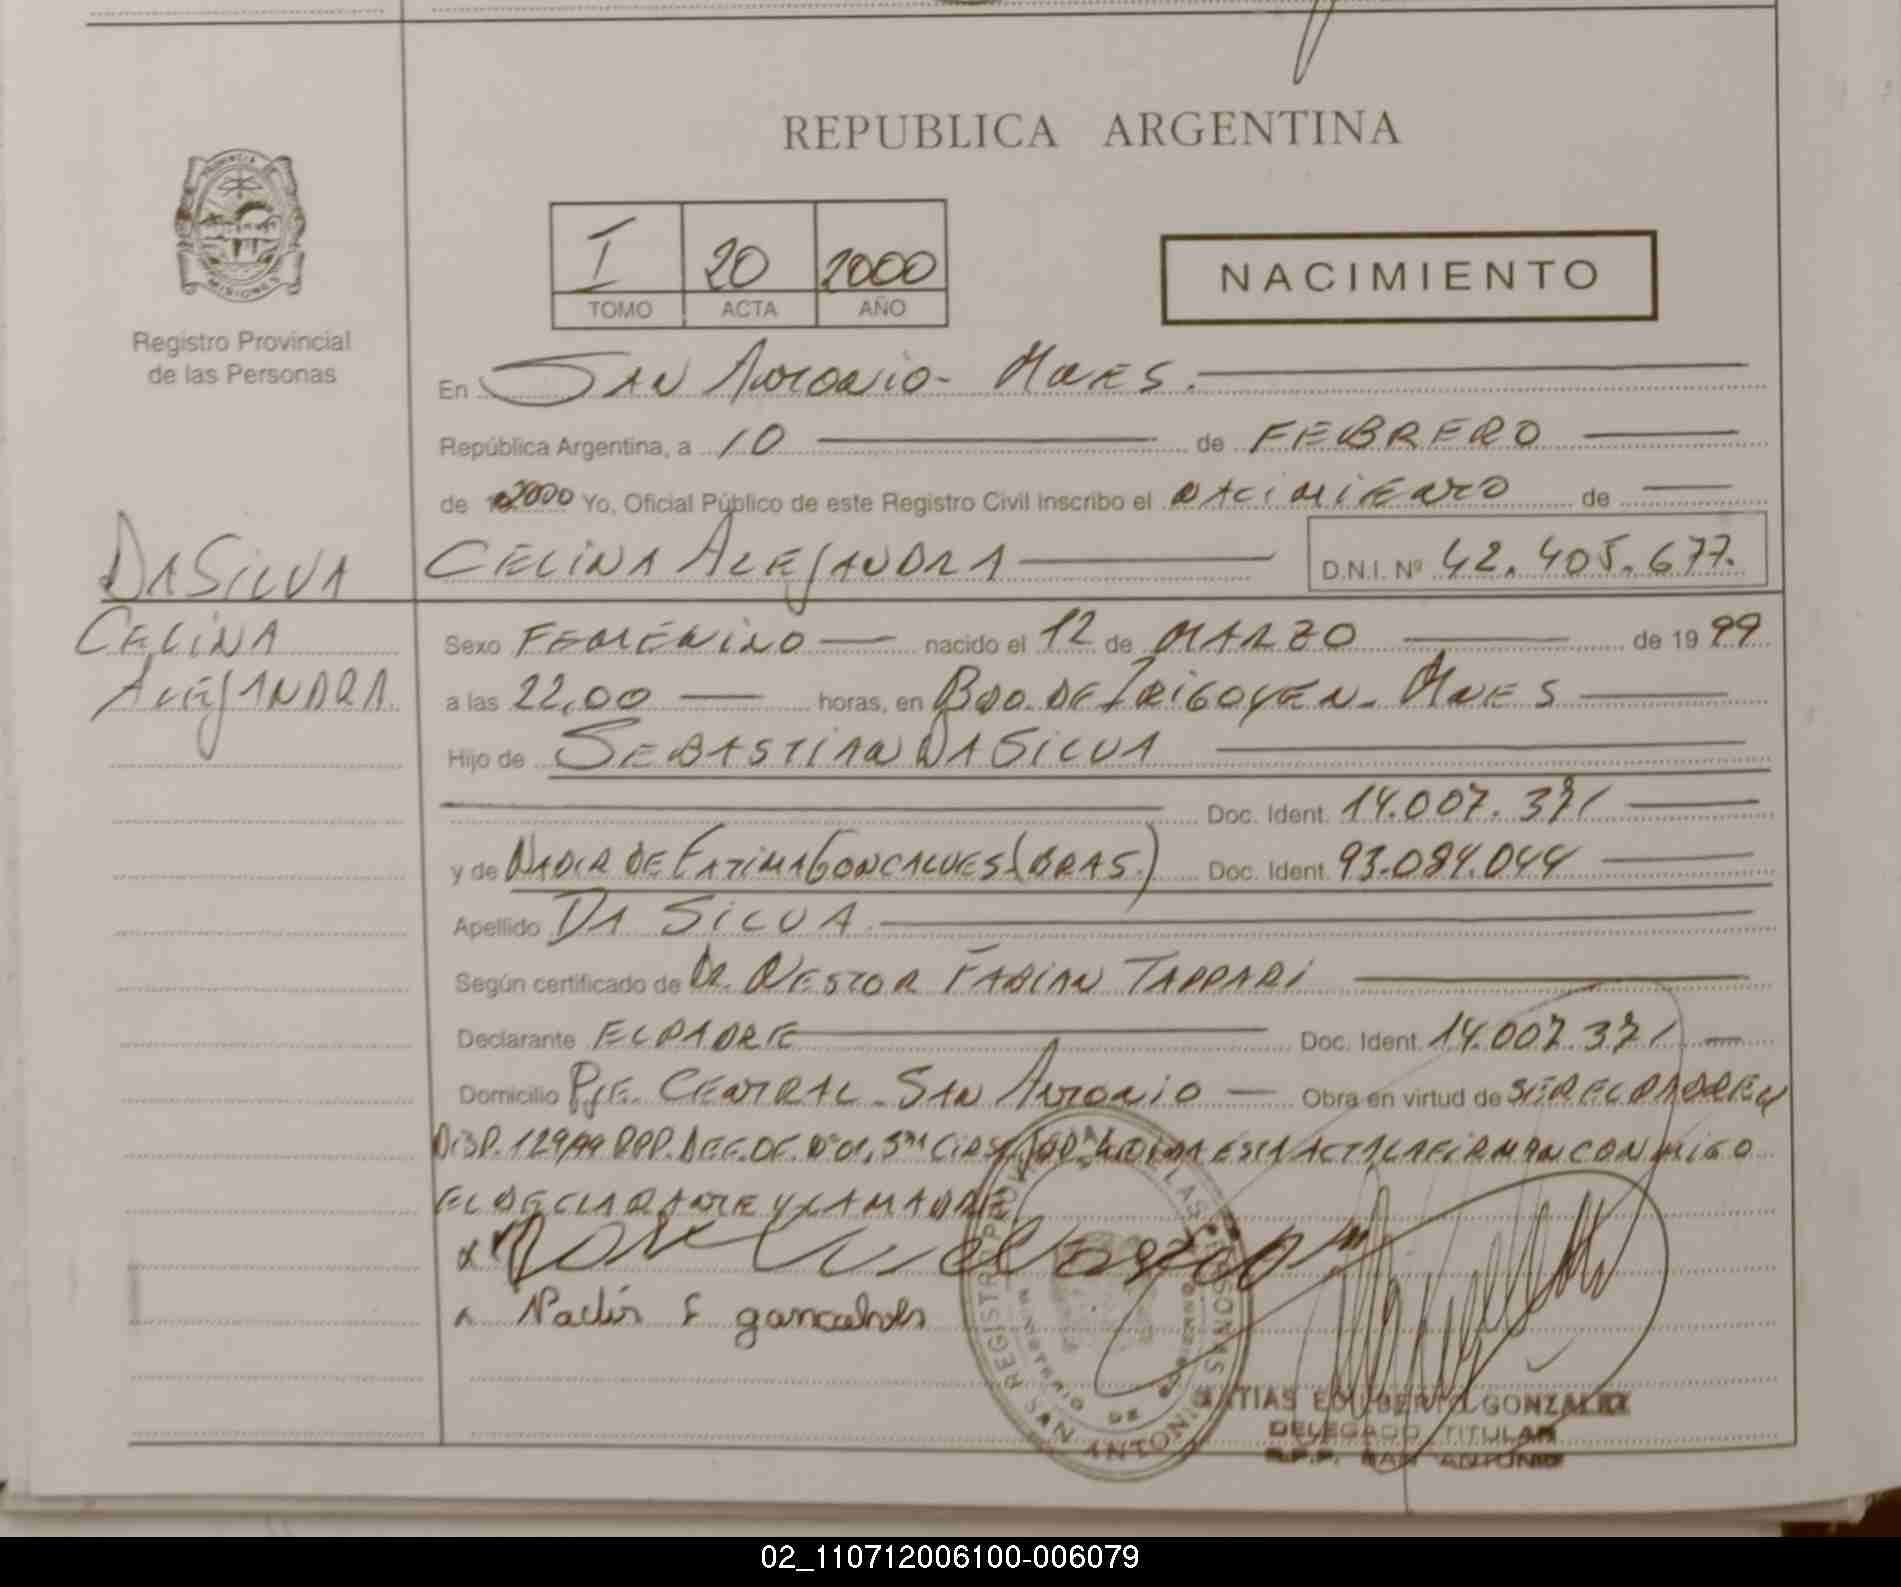 REPUBLICA ARGENTINA
PROVINCIA DE
MISIONES
Registro Provincial
de las Personas
I 20 2000
TOMO ACTA AÑO
NACIMIENTO
En San Antonio - Mnes.
República Argentina, a 10 de FEBRERO
de 2000 Yo, Oficial Público de este Registro Civil Inscribo el nacimiento de
CELINA ALEJANDRA D.N.I. Nº 42.405.677.
DA SILVA
CELINA
ALEJANDRA
Sexo FEMENINO nacido el 12 de MARZO de 1999
a las 22,00 horas, en Bdo. DE IRIGOYEN - Mnes
Hijo de SEBASTIAN DA SILVA
Doc. Ident. 14.007.371
y de NADIR DE FATIMA GONCALVES (BRAS.) Doc. Ident. 93.084.044
Apellido DA SILVA
Según certificado de Dr. NESTOR FABIAN TAPPARI
Declarante EL PADRE Doc. Ident. 14.007.371
Domicilio Pje. CENTRAL - SAN ANTONIO Obra en virtud de SER EL PADRE Y
DISP. 129/99 RPP. DEF. OF. Nº 01, 3ra ESTA ACTA LA FIRMAN CONMIGO
EL DECLARANTE Y LA MADRE
x
x Nadir F goncalves
REGISTRO PROVINCIAL DE LAS PERSONAS
MINISTERIO DE GOBIERNO
SAN ANTONIO
MATIAS EDILBERTO GONZALEZ
DELEGADO TITULAR
R.P.P. SAN ANTONIO
02_110712006100-006079